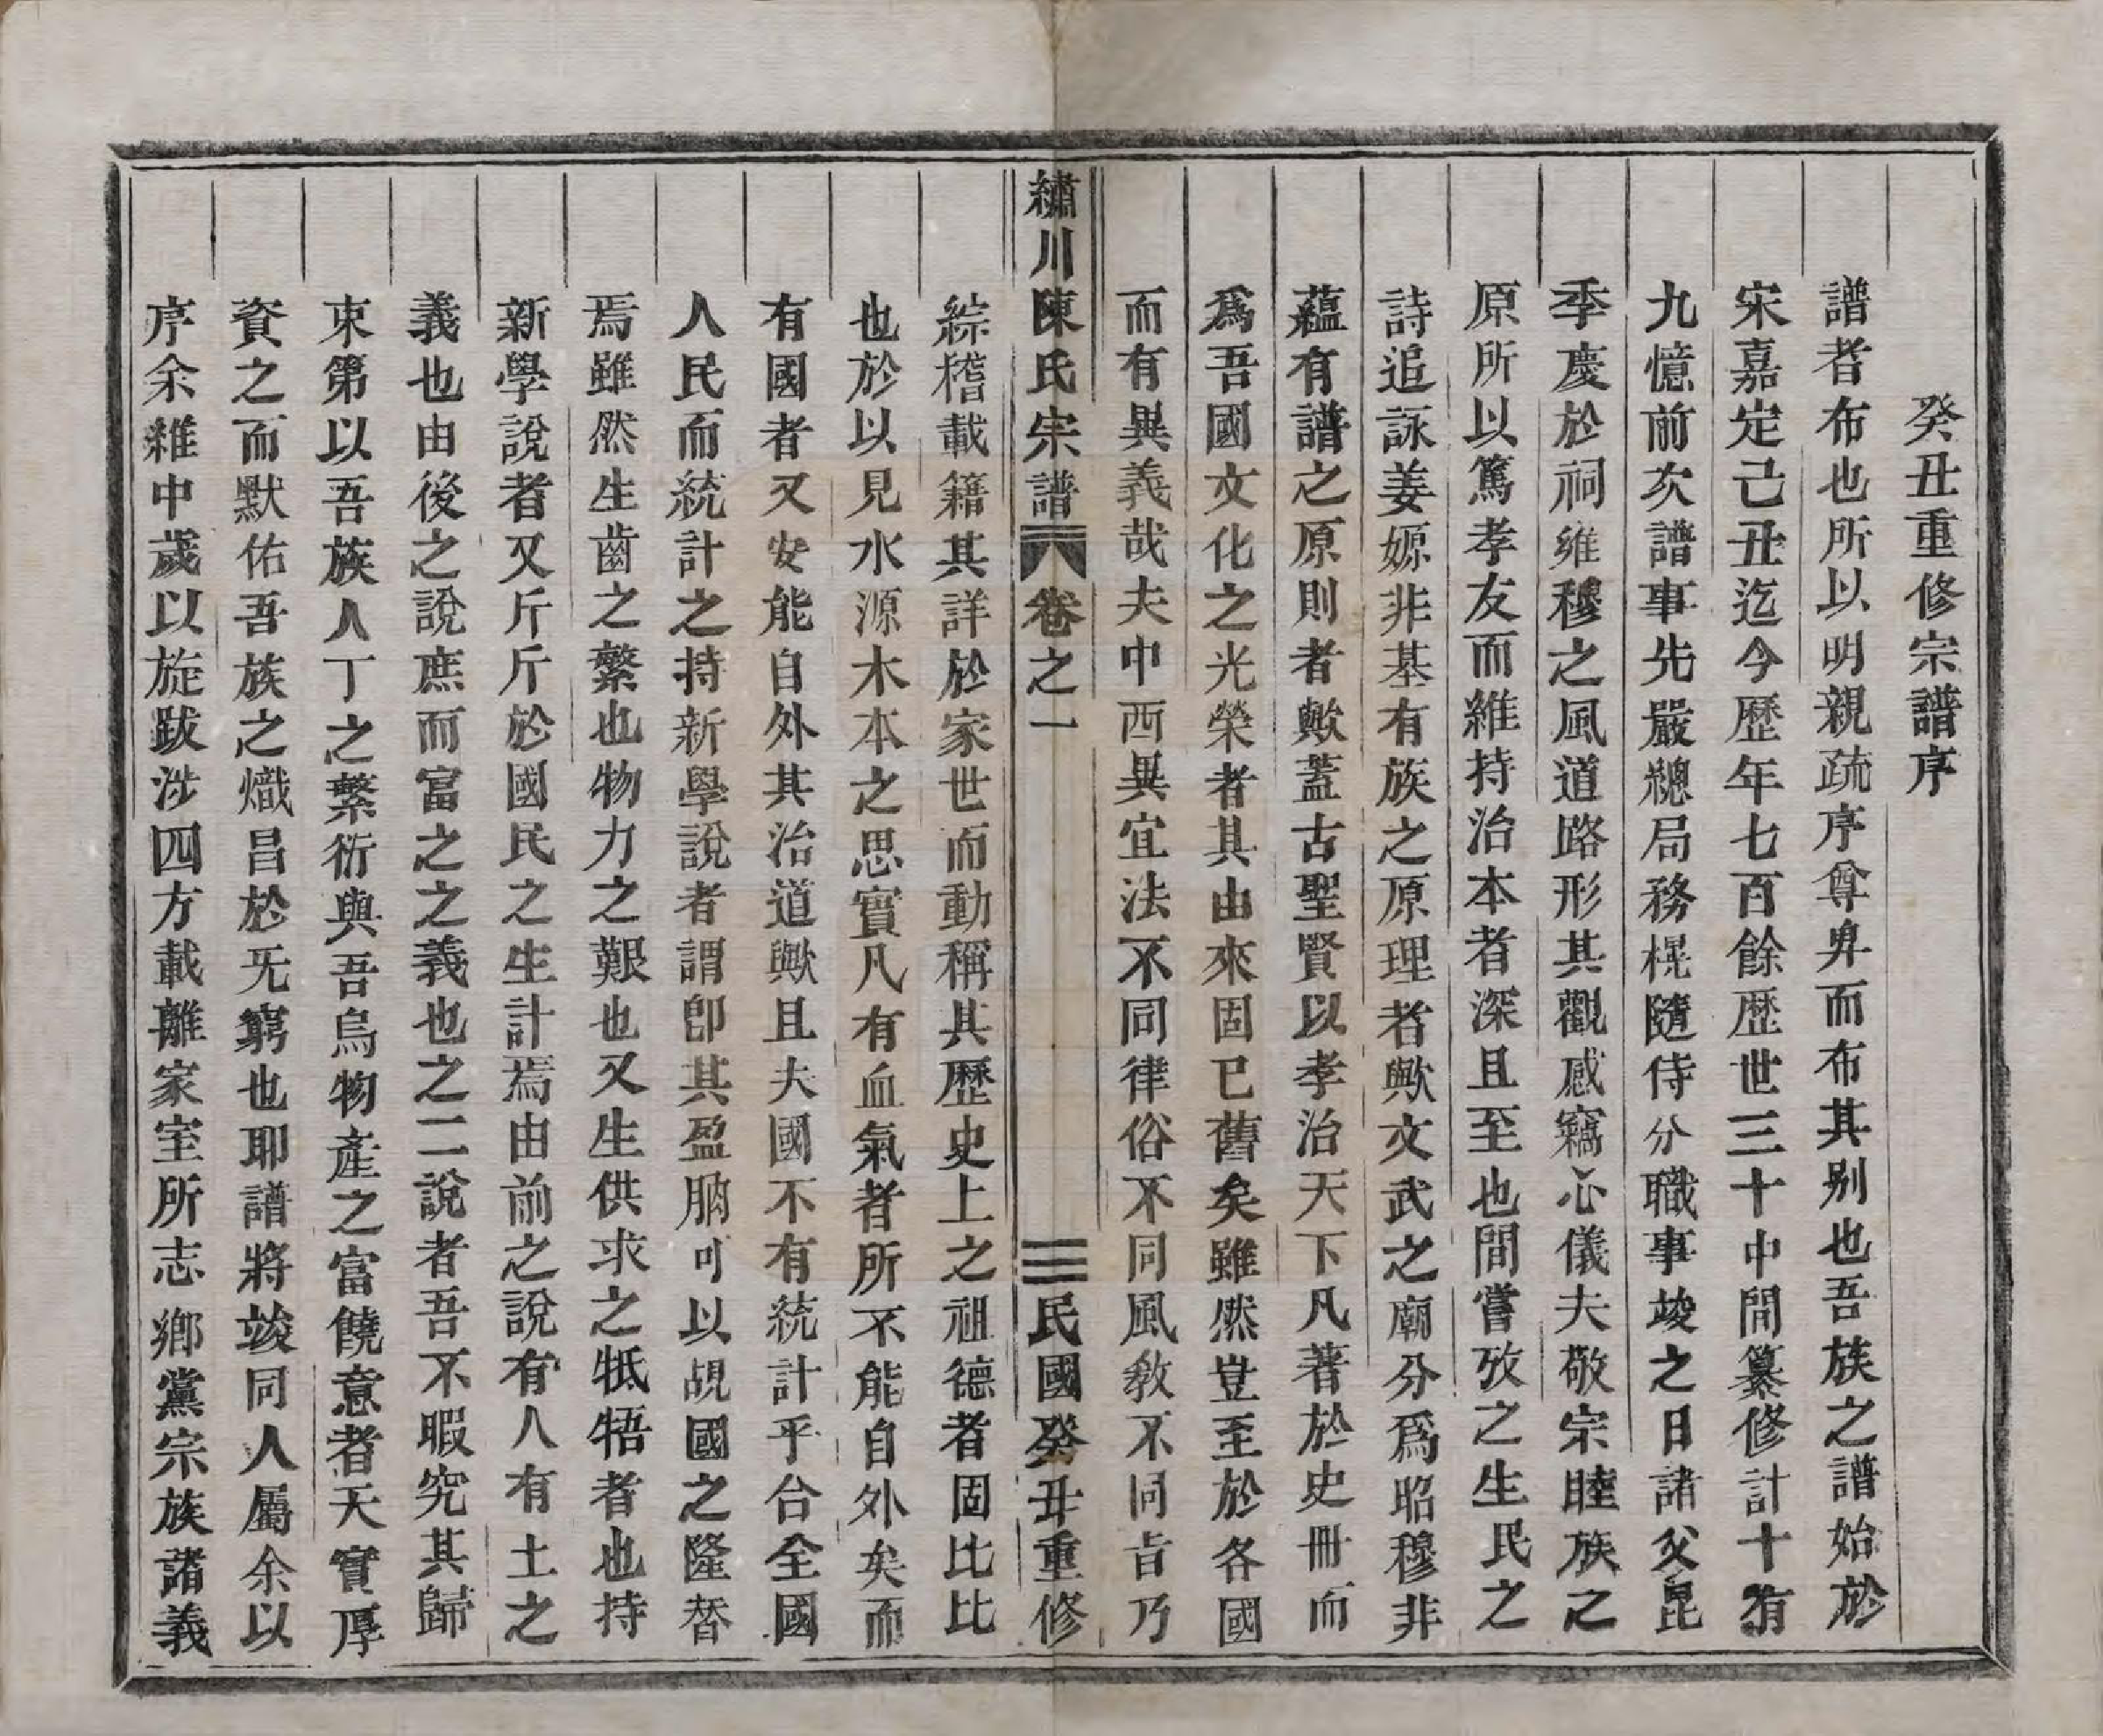 癸丑重修宗譜序
譜者布也所以明親疏序尊卑而布其别也吾族之譜始於
宋嘉定己丑迄今歷年七百餘歷世三十中間纂修計十有
九憶前次譜事先嚴總局務棍隨侍分職事竣之日諸父昆
季慶於祠雍穆之風道路形其觀感竊心儀夫敬宗睦族之
原所以篤孝友而維持治本者深且至也間嘗攷之生民之
詩追詠姜嫄非基有族之原理者歟文武之廟分爲昭穆非
蘊有譜之原則者歟蓋古聖賢以孝治天下凡著於史冊而
爲吾國文化之光榮者其由來固已舊矣雖然豈至於各國
而有異義哉夫中西異宜法不同律俗不同風敎不同旨乃
繡川陳氏宗譜 卷之一 三 民國癸丑重修
綜稽載籍其詳於家世而動稱其歷史上之祖德者固比比
也於以見水源木本之思實凡有血氣者所不能自外矣而
有國者又安能自外其治道歟且夫國不有統計乎合全國
人民而統計之持新學說者謂卽其盈朒可以覘國之隆替
焉雖然生齒之繁也物力之艱也又生供求之牴牾者也持
新學說者又斤斤於國民之生計焉由前之說有人有土之
義也由後之說庶而富之之義也之二說者吾不暇究其歸
束第以吾族人丁之繁衍與吾烏物產之富饒意者天實厚
資之而默佑吾族之熾昌於无窮也耶譜將竣同人屬余以
序余雖中歲以旋跋涉四方載離家室所志鄉黨宗族諸義